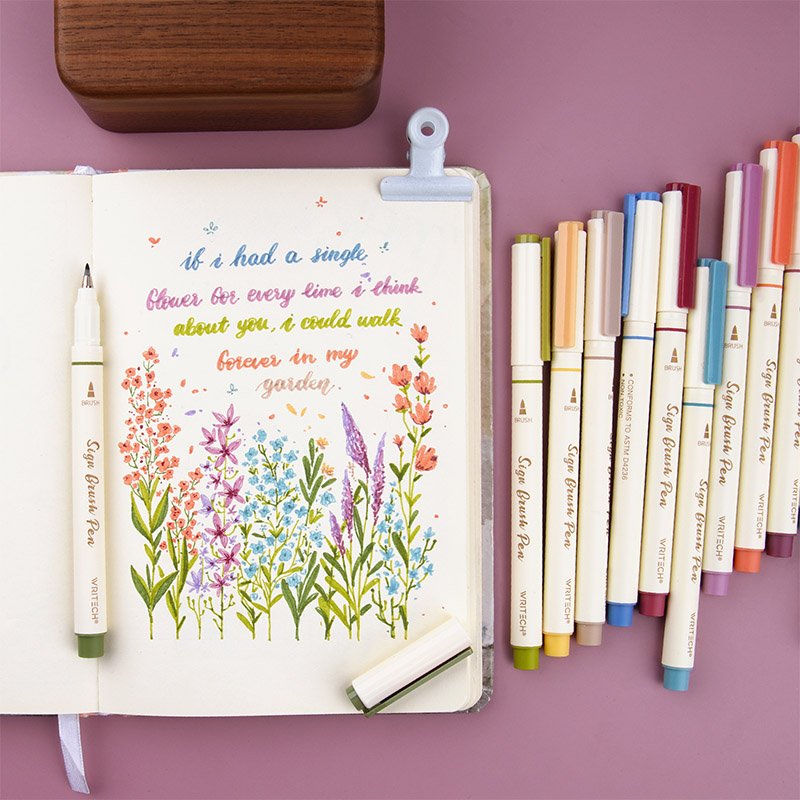 if i had a single
flower for every time i think
about you, i could walk
forever in my
garden.
BRUSH
Sign Brush Pen
WRITECH®
BRUSH
Sign Brush Pen
WRITECH®
BRUSH
Sign Brush Pen
WRITECH®
CONFORMS TO ASTM D4236
NON-TOXIC
BRUSH
Sign Brush Pen
WRITECH®
BRUSH
Sign Brush Pen
WRITECH®
BRUSH
Sign Brush Pen
WRITECH®
BRUSH
Sign Brush Pen
WRITECH®
Sign Brush Pen
WRITECH®